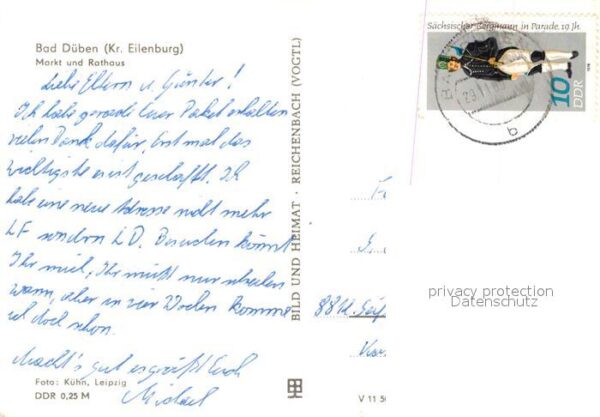 Bad Düben (Kr. Eilenburg)
Markt und Rathaus
Liebe Eltern u. Günter!
Ich habe gerade Euer Paket erhalten
vielen Dank dafür. Erst mal das
wichtigste erst geschafft. Ich
habe eine neue Adresse nicht mehr
LF sondern LD. Besuchen könnt
Ihr mich, Ihr müßt nur schreiben
wann, aber in vier Wochen komme
ich doch schon.
Macht's gut es grüßt Euch
Michael
Foto: Kühn, Leipzig
DDR 0,25 M
BILD UND HEIMAT · REICHENBACH (VOGTL)
V 11 50
Sächsischer Bergmann in Parade. 19 Jh.
10
DDR
privacy protection
Datenschutz